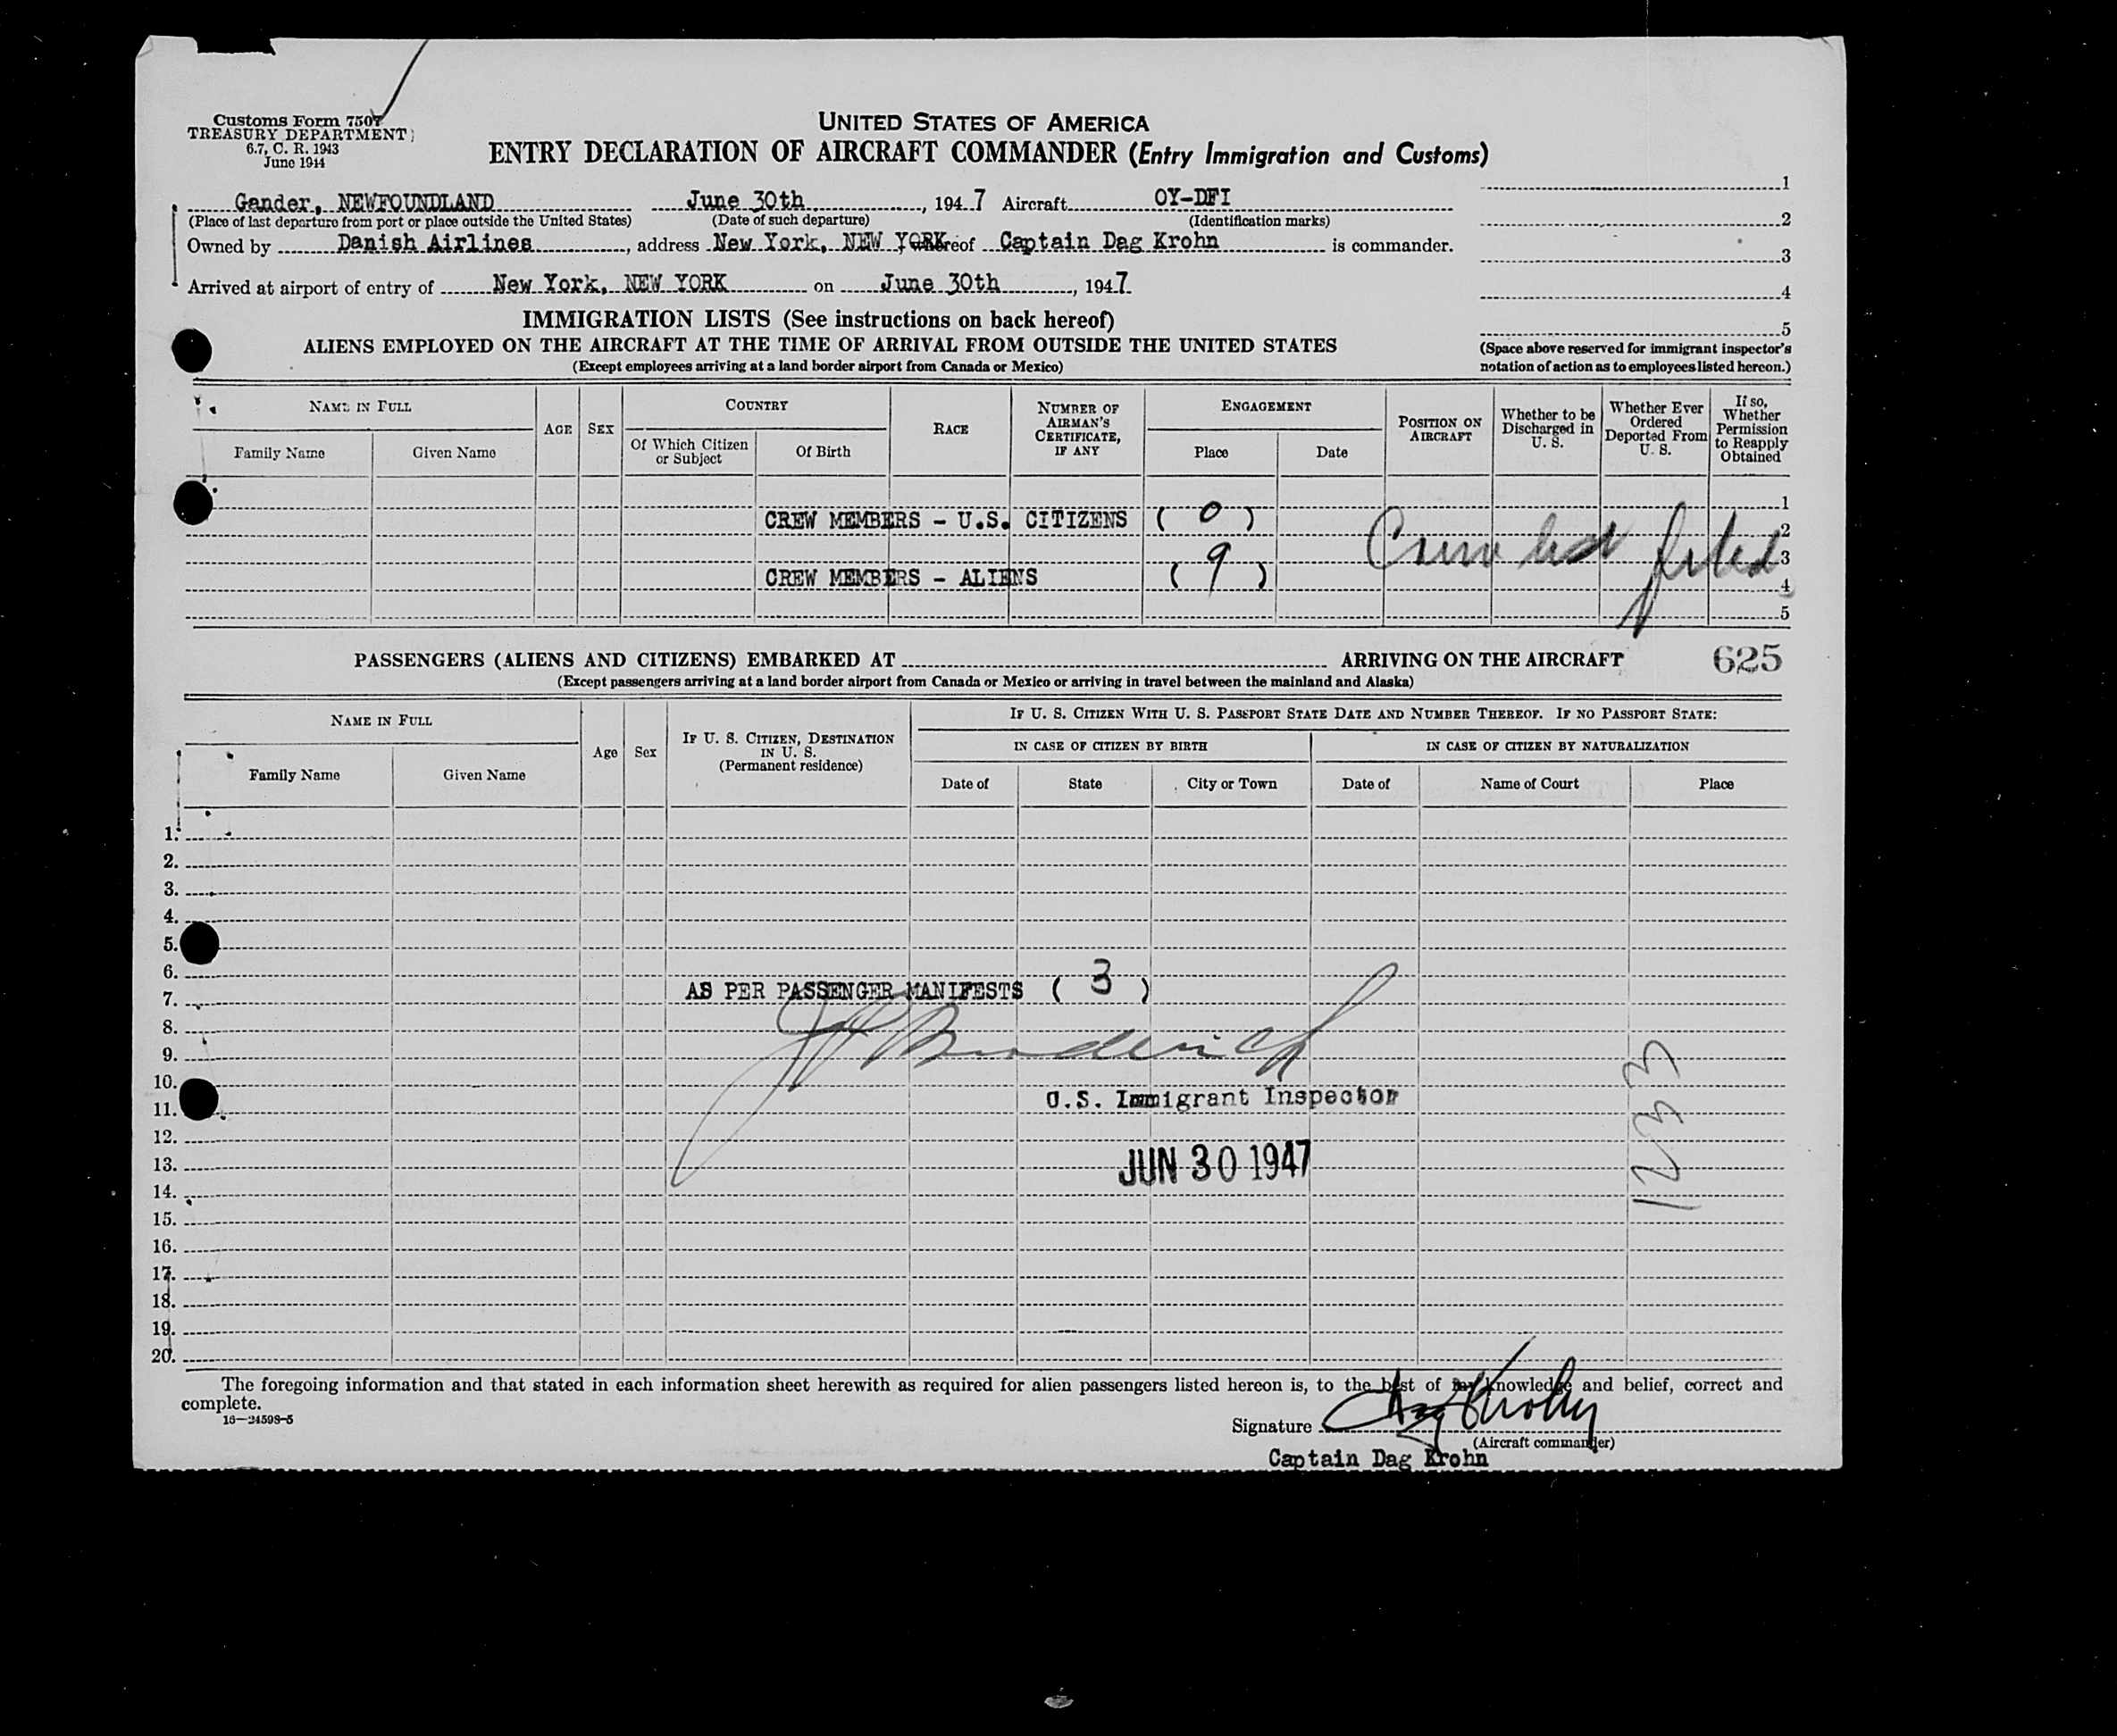 Customs Form 7507
TREASURY DEPARTMENT
6.7, C. R. 1943
June 1944
UNITED STATES OF AMERICA
ENTRY DECLARATION OF AIRCRAFT COMMANDER (Entry Immigration and Customs)
Gander, NEWFOUNDLAND June 30th, 1947 Aircraft OY-DFI
(Place of last departure from port or place outside the United States) (Date of such departure) (Identification marks)
Owned by Danish Airlines, address New York, NEW YORK reof Captain Dag Krohn is commander.
Arrived at airport of entry of New York, NEW YORK on June 30th, 1947
1
2
3
4
5
(Space above reserved for immigrant inspector's
notation of action as to employees listed hereon.)
IMMIGRATION LISTS (See instructions on back hereof)
ALIENS EMPLOYED ON THE AIRCRAFT AT THE TIME OF ARRIVAL FROM OUTSIDE THE UNITED STATES
(Except employees arriving at a land border airport from Canada or Mexico)
NAME IN FULL AGE SEX COUNTRY RACE NUMBER OF AIRMAN'S CERTIFICATE, IF ANY ENGAGEMENT POSITION ON AIRCRAFT Whether to be Discharged in U. S. Whether Ever Ordered Deported From U. S. If so, Whether Permission to Reapply Obtained
Family Name Given Name Of Which Citizen or Subject Of Birth Place Date
1
CREW MEMBERS - U.S. CITIZENS ( 0 )
2
Crew list filed
3
CREW MEMBERS - ALIENS ( 9 )
4
5
PASSENGERS (ALIENS AND CITIZENS) EMBARKED AT ARRIVING ON THE AIRCRAFT 625
(Except passengers arriving at a land border airport from Canada or Mexico or arriving in travel between the mainland and Alaska)
NAME IN FULL Age Sex IF U. S. CITIZEN, DESTINATION IN U. S. (Permanent residence) IF U. S. CITIZEN WITH U. S. PASSPORT STATE DATE AND NUMBER THEREOF. IF NO PASSPORT STATE:
IN CASE OF CITIZEN BY BIRTH IN CASE OF CITIZEN BY NATURALIZATION
Family Name Given Name Date of State City or Town Date of Name of Court Place
1.
2.
3.
4.
5.
6.
AS PER PASSENGER MANIFESTS ( 3 )
7.
8.
9.
10.
U.S. Immigrant Inspector
11.
12.
13.
JUN 30 1947
1233
14.
15.
16.
17.
18.
19.
20.
The foregoing information and that stated in each information sheet herewith as required for alien passengers listed hereon is, to the best of my knowledge and belief, correct and
complete.
16—24598-5
Signature Dag Krohn
(Aircraft commander)
Captain Dag Krohn